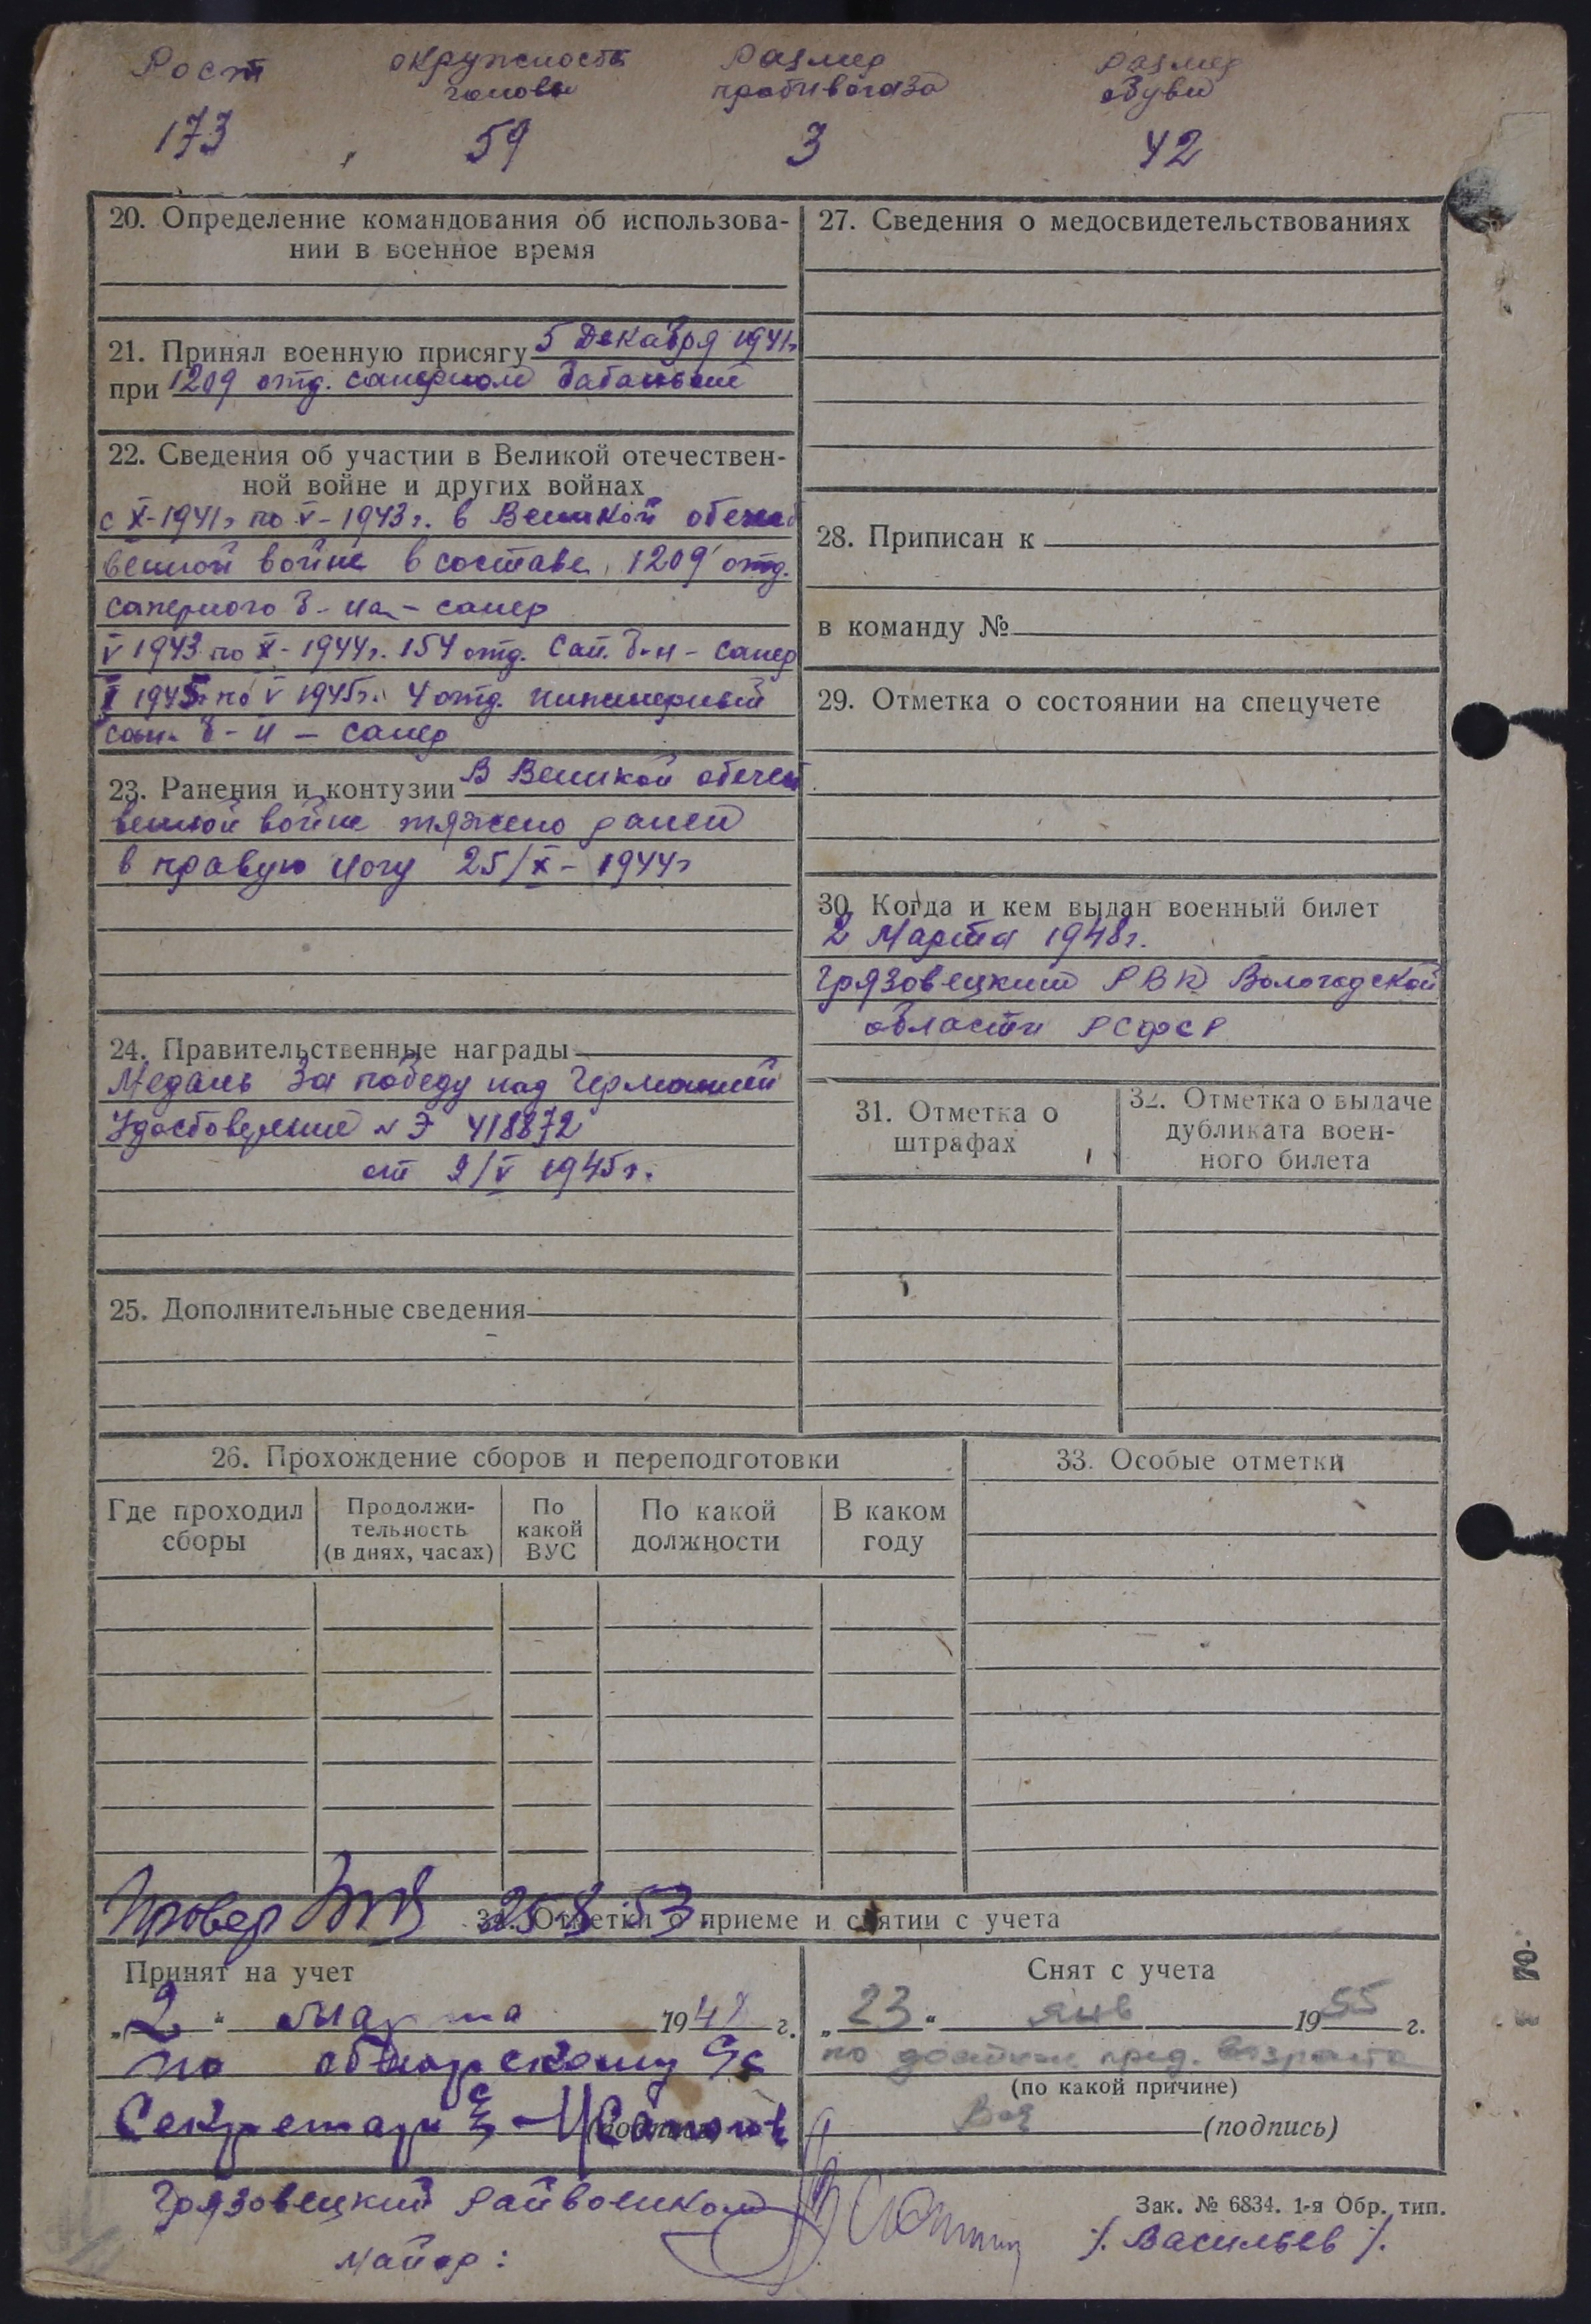 Рост окружность Размер Размер
головы противогаза обуви
173 59 3 42
20. Определение командования об использова-
нии в военное время
21. Принял военную присягу 5 Декабря 1941г.
при 1209 отд. саперном батальоне
22. Сведения об участии в Великой отечествен-
ной войне и других войнах
с X-1941г по V-1943г. в Великой отечест
венной войне в составе 1209 отд.
саперного б-на - сапер
V 1943 по X-1944г. 154 отд. сап. б-н - сапер
1945г по V 1945г. 4 отд. инженерный
б-н - сапер
23. Ранения и контузии В Великой отечест
венной войне тяжело ранен
в правую ногу 25/X-1944г
24. Правительственные награды
Медаль За победу над Германией
Удостоверение № Э 418872
от 9/V 1945г.
25. Дополнительные сведения
27. Сведения о медосвидетельствованиях
28. Приписан к
в команду №
29. Отметка о состоянии на спецучете
30. Когда и кем выдан военный билет
2 Марта 1948г.
Грязовецким РВК Вологодской
области РСФСР
31. Отметка о
штрафах
32. Отметка о выдаче
дубликата воен-
ного билета
26. Прохождение сборов и переподготовки
Где проходил
сборы
Продолжи-
тельность
(в днях, часах)
По
какой
ВУС
По какой
должности
В каком
году
33. Особые отметки
Провер 25 8 53
34. Отметки о приеме и снятии с учета
Принят на учет
„2“ марта 1948 г.
по
Секретарь (подпись)
Снят с учета
„23“ янв 1955 г.
по достиж. пред. возраста
(по какой причине)
(подпись)
Грязовецкий Райвоенком
майор: /. Васильев /.
Зак. № 6834. 1-я Обр. тип.
70-